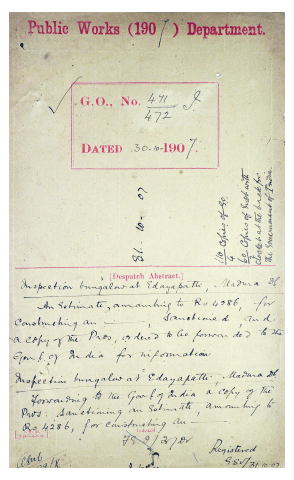 Public Works (1907) Department.
G.O., No. 471 I
472
DATED 30-10-1907.
31. 10. 07
110 Copies of G.O.
60 Copies of
the Government of India
[Despatch Abstract.]
Inspection bungalow at Edayapatti, Madura Dt
An Estimate, amounting to Rs 4286, for
constructing an — , Sanctioned, and
a copy of the Pros, ordered to be forwarded to the
Govt of India for information
Inspection bungalow at Edayapatti, Madura Dt
Forwarding to the Govt of India a copy of the
Pros: Sanctioning an Estimate amounting to
Rs 4286, for constructing an —
Registered
31.10.07